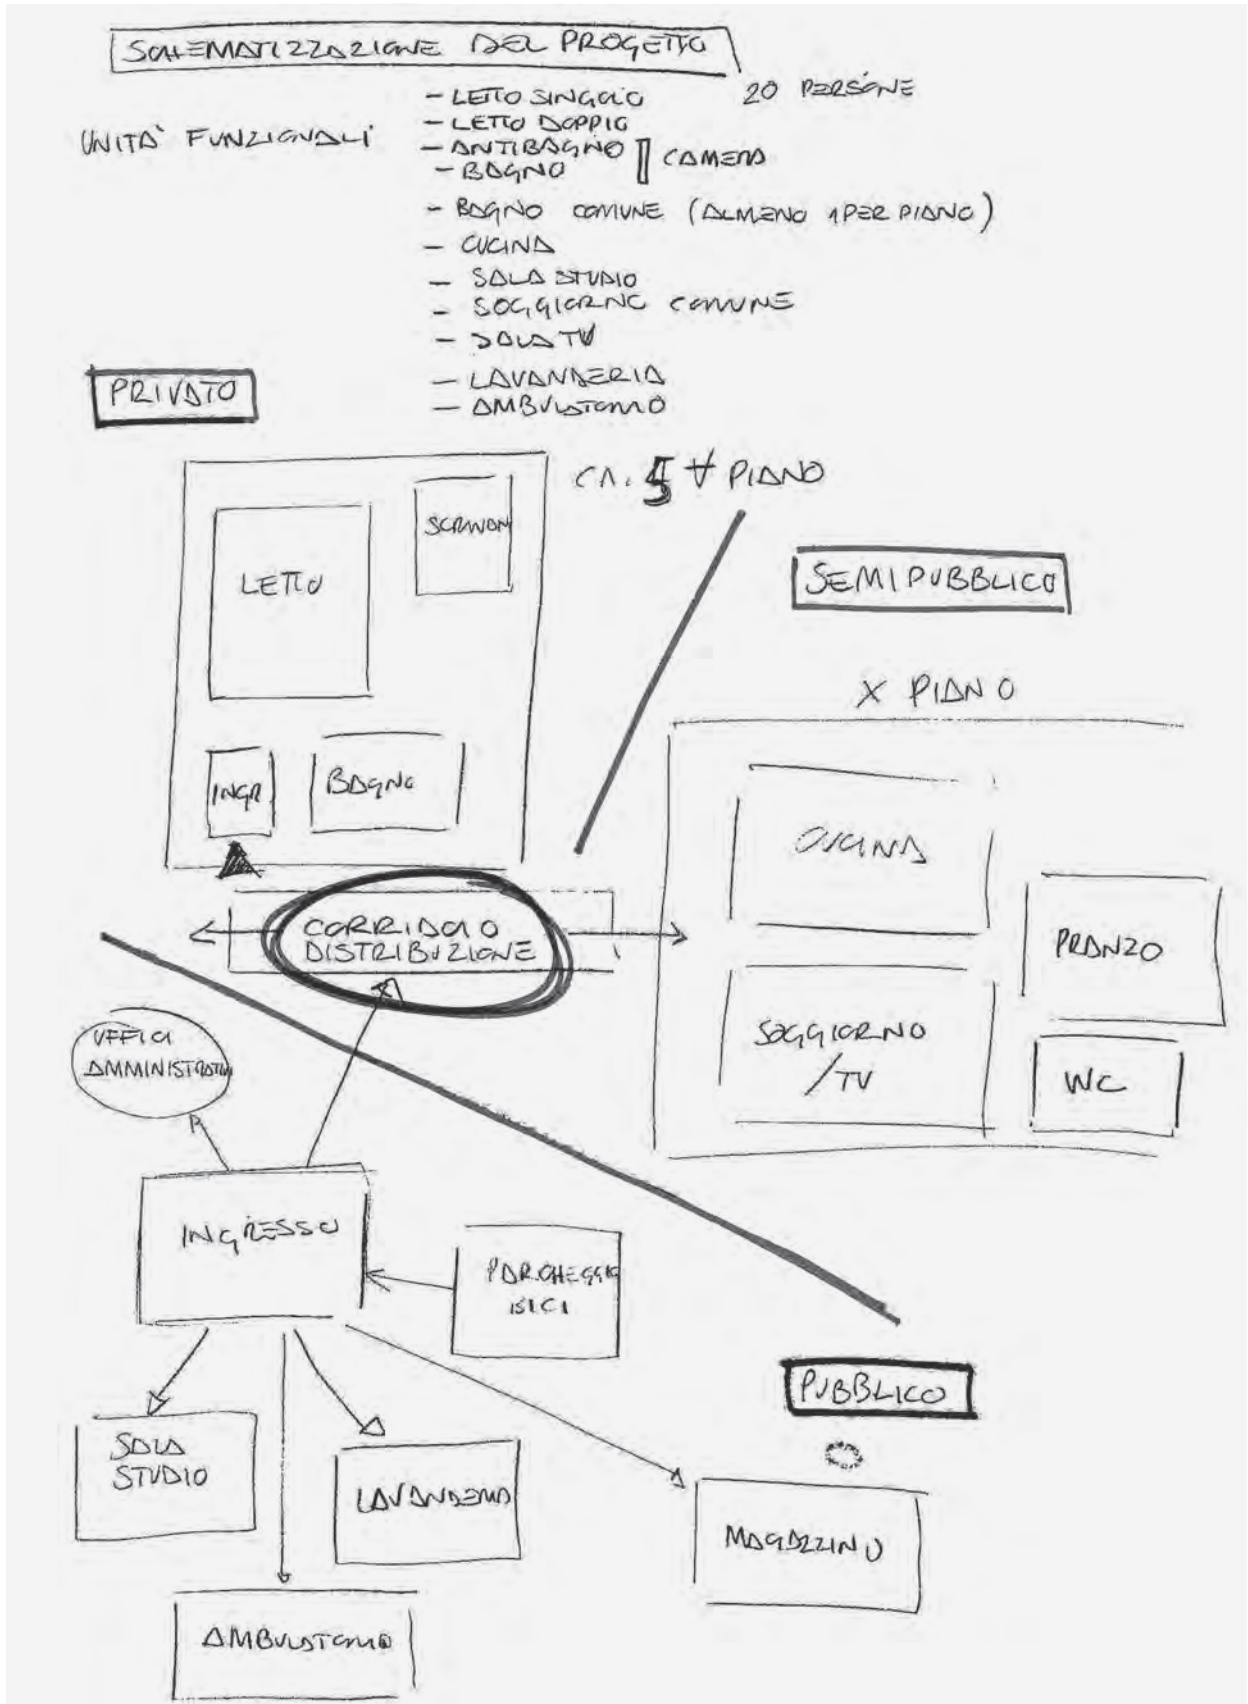 SCHEMATIZZAZIONE DEL PROGETTO
20 PERSONE
UNITA' FUNZIONALI
- LETTO SINGOLO
- LETTO DOPPIO
- ANTIBAGNO
- BAGNO
CAMERA
- BAGNO COMUNE (ALMENO 1 PER PIANO)
- CUCINA
- SALA STUDIO
- SOGGIORNO COMUNE
- SALA TV
- LAVANDERIA
- AMBULATORIO
PRIVATO
CA. 5 ∀ PIANO
LETTO
INGR.
BAGNO
SEMIPUBBLICO
X PIANO
CUCINA
PRANZO
SOGGIORNO
/TV
WC
CORRIDOIO
DISTRIBUZIONE
UFFICI
AMMINISTRATIVI
INGRESSO
PARCHEGGIO
BICI
PUBBLICO
SALA
STUDIO
LAVANDERIA
MAGAZZINO
AMBULATORIO